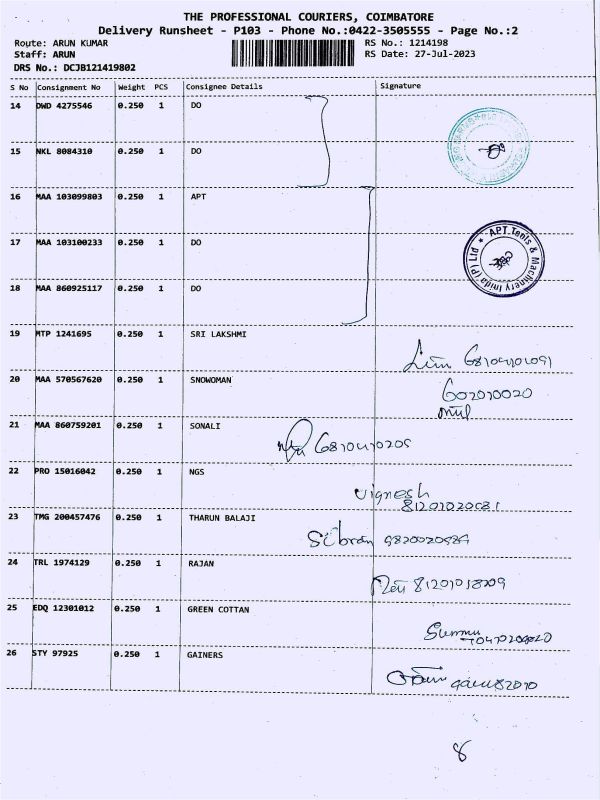 THE PROFESSIONAL COURIERS, COIMBATORE
Delivery Runsheet - P103 - Phone No.:0422-3505555 - Page No.:2
Route: ARUN KUMAR RS No.: 1214198
Staff: ARUN RS Date: 27-Jul-2023
DRS No.: DCJB121419802
S No Consignment No Weight PCS Consignee Details Signature
14 DWD 4275546 0.250 1 DO
15 NKL 8084310 0.250 1 DO
16 MAA 103099803 0.250 1 APT
APT Tools & Machinery Inida (P) Ltd
17 MAA 103100233 0.250 1 DO
18 MAA 860925117 0.250 1 DO
19 MTP 1241695 0.250 1 SRI LAKSHMI
20 MAA 570567620 0.250 1 SNOWOMAN
21 MAA 860759201 0.250 1 SONALI
22 PRO 15016042 0.250 1 NGS
Vignesh
23 TMG 200457476 0.250 1 THARUN BALAJI
24 TRL 1974129 0.250 1 RAJAN
25 EDQ 12301012 0.250 1 GREEN COTTAN
26 STY 97925 0.250 1 GAINERS
8